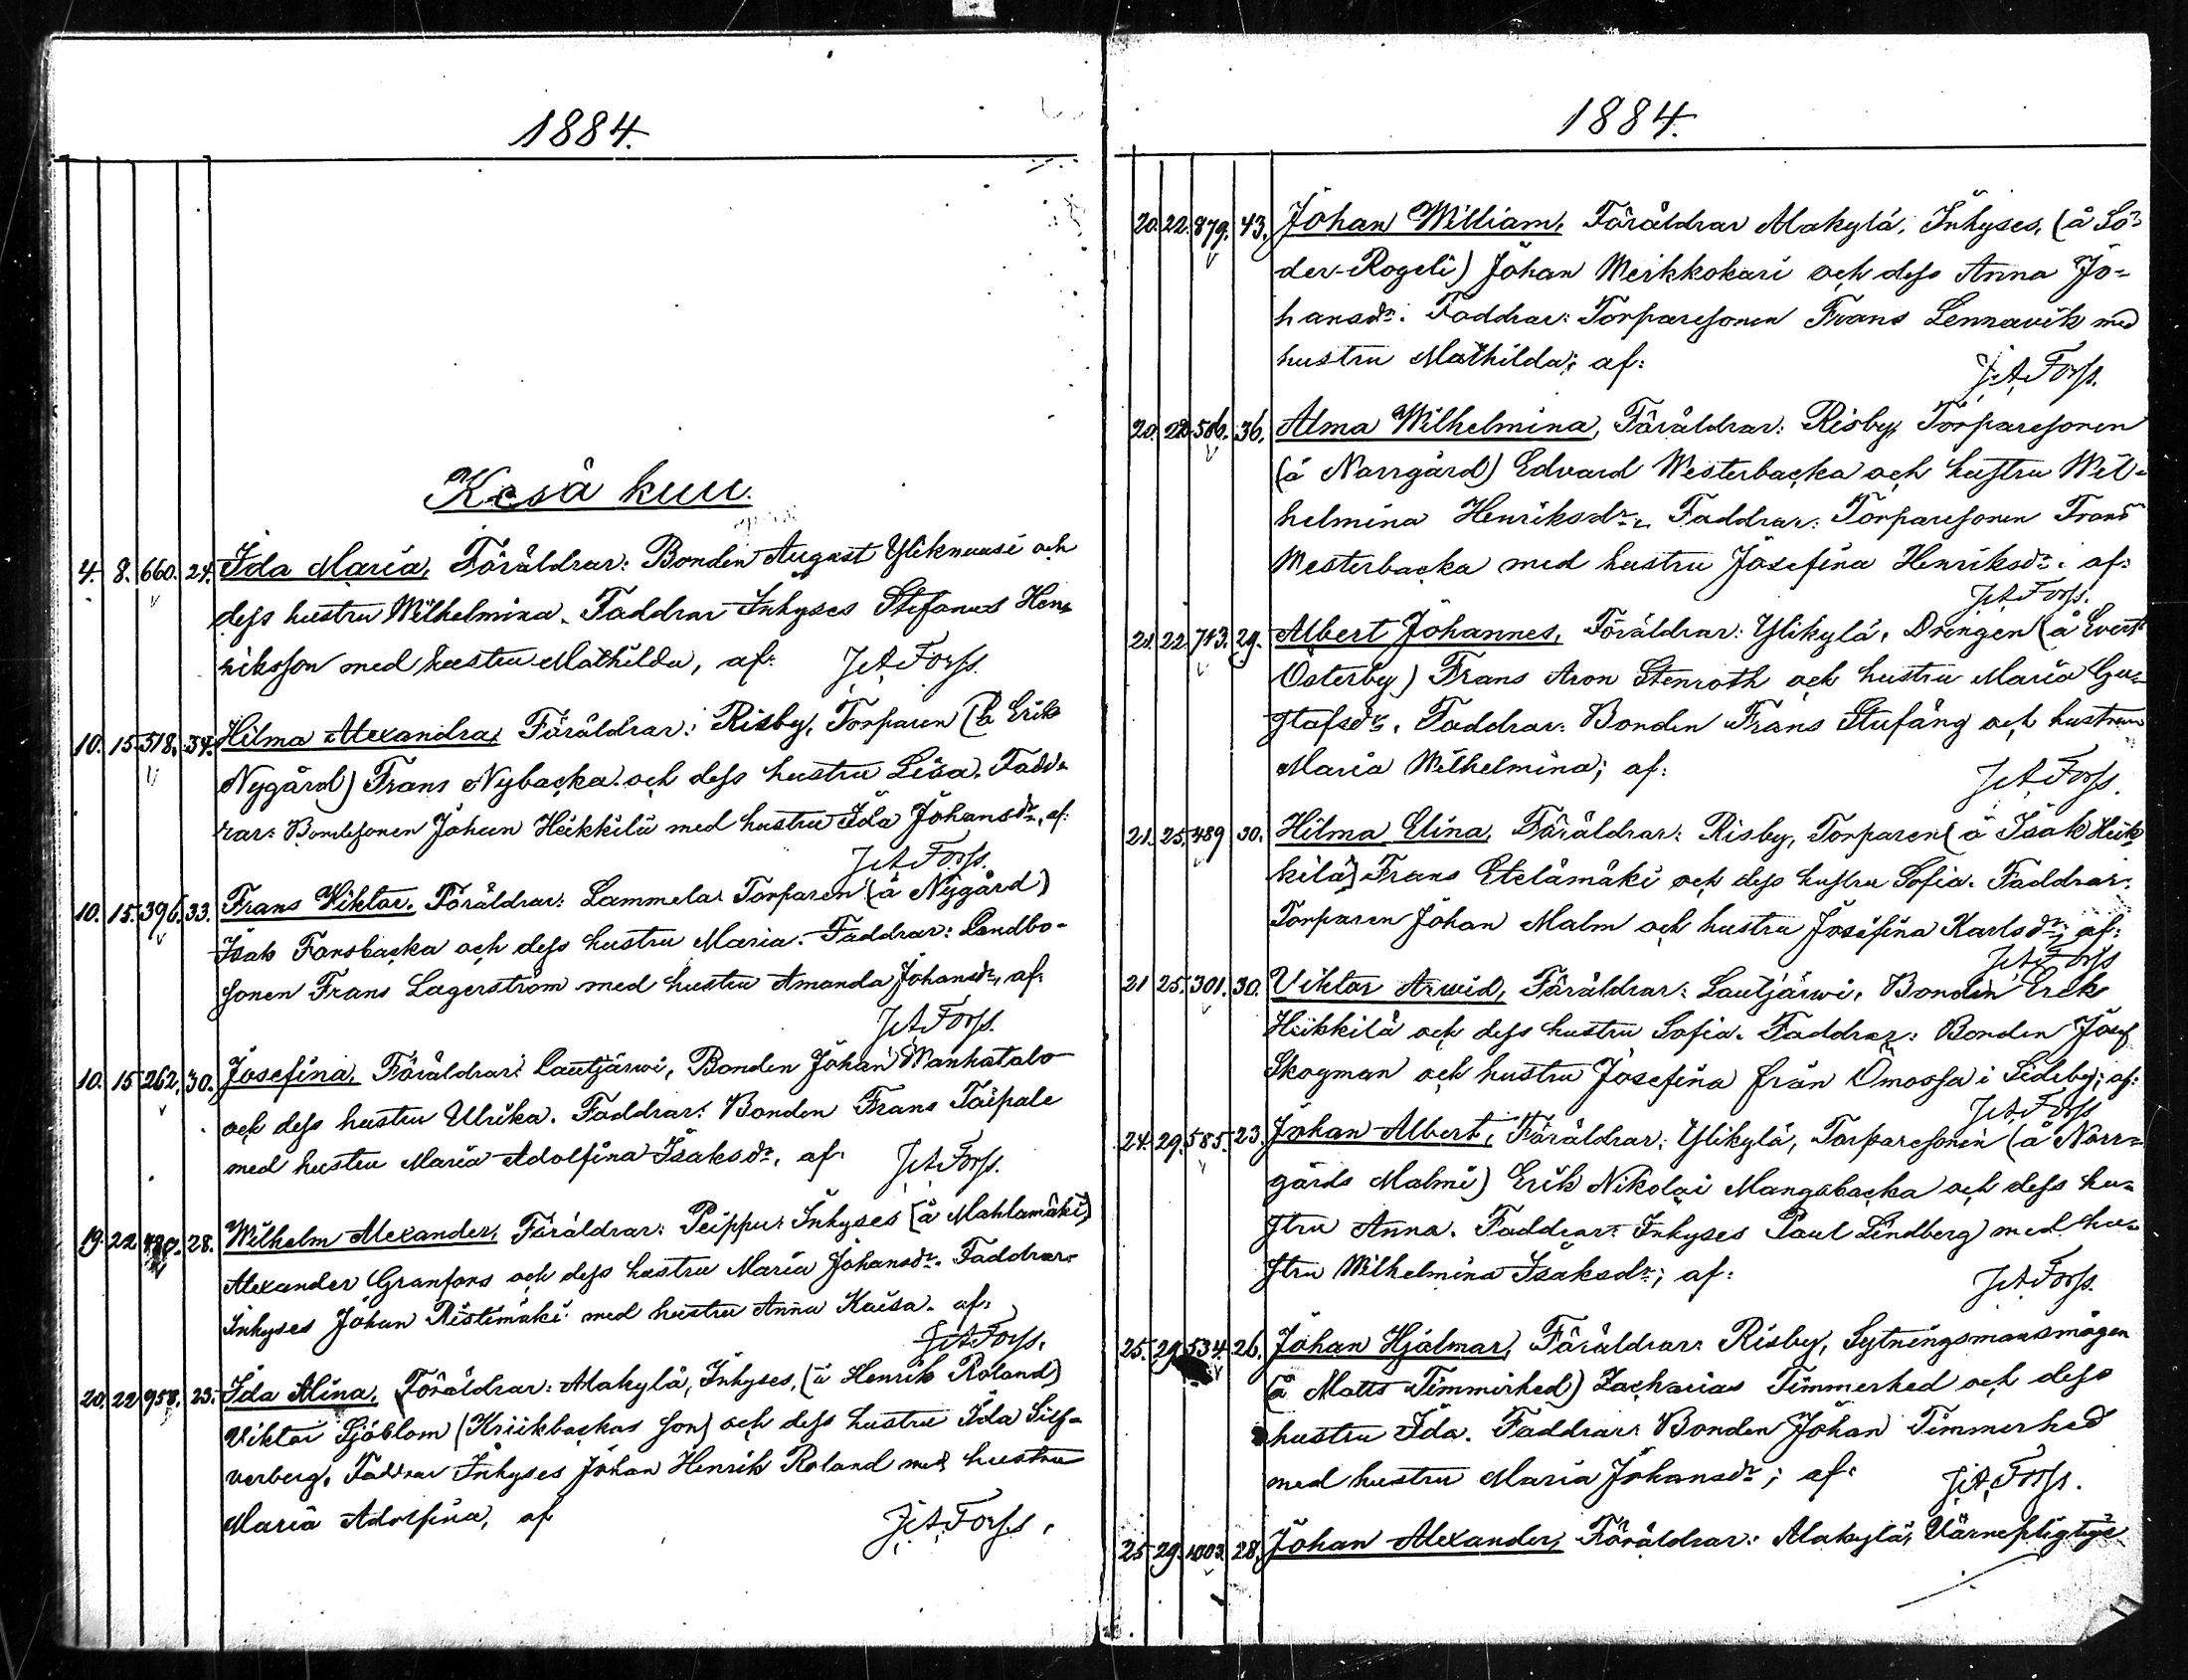 1884.
Kesä kuu.
4. 8. 660. 24. Ida Maria, Föräldrar: Bonden August Yliknuusi och
dess hustru Wilhelmina. Faddrar Inhyses Stefanus Hen-
riksson med hustru Mathilda, af: J.A. Forss.
10. 15. 518. 34. Hilma Alexandra, Föräldrar: Risby, Torparen (å Eriks
Nygård) Frans Nybacka och dess hustru Lisa. Fadd-
rar: Bondesonen Johan Heikkilä med hustru Ida Johansdr, af:
J.A. Forss.
10. 15. 396. 33. Frans Viktor. Föräldrar: Lammela Torparen (å Nygård)
Isak Forsbacka och dess hustru Maria. Faddrar: Landbo-
sonen Frans Lagerström med hustru Amanda Johansdr, af:
J.A. Forss.
10. 15 262. 30. Josefina, Föräldrar: Lautjärwi, Bonden Johan Manhatalo
och dess hustru Ulrika. Faddrar: Bonden Frans Taipale
med hustru Maria Adolfina Isaksdr, af: J.A. Forss.
19. 22 28. Wilhelm Alexander, Föräldrar: Peippu, Inhyses (å Mahlamäki)
Alexander Granfors och dess hustru Maria Johansdr. Faddrar:
Inhyses Johan Ristimäki med hustru Anna Kaisa. af:
J.A. Forss.
20. 22 958. 23. Ida Alina, Föräldrar: Alakylä, Inhyses, (å Henrik Roland)
Viktor Sjöblom (Kriikbackas son) och dess hustru Ida Silf-
verberg. Faddrar Inhyses Johan Henrik Roland med hustru
Maria Adolfina, af J.A. Forss.
1884.
20. 22. 879. 43. Johan William, Föräldrar Alakylä, Inhyses, (å Sö-
der-Rogeli) Johan Meikkokari och dess Anna Jo-
hansdr. Faddrar: Torparesonen Frans Lennavik med
hustru Mathilda; af:
J.A. Forss.
20. 22 586. 36. Alma Wilhelmina, Föräldrar: Risby, Torparesonen
(å Norrgård) Edvard Westerbacka och hustru Wil-
helmina Henriksdr. Faddrar: Torparesonen Frans
Westerbacka med hustru Josefina Henriksdr. af:
J.A. Forss.
21. 22. 713. 29. Albert Johannes, Föräldrar: Ylikylä, Drengen (å Evert
Österby) Frans Aron Stenroth och hustru Maria Gu-
stafsdr. Faddrar: Bonden Frans Stufäng och hustrun
Maria Wilhelmina; af:
J.A. Forss.
21. 25. 489 30. Hilma Elina, Föräldrar: Risby, Torparen (å Isak Heik-
kilä) Frans Etelämäki och dess hustru Sofia. Faddrar:
Torparen Johan Malm och hustru Josefina Karlsdr; af:
J.A. Forss
21 25. 301. 30. Viktor Arwid, Föräldrar: Lautjärwi, Bonden Erik
Heikkilä och dess hustru Sofia. Faddrar: Bonden Josef
Skogman och hustru Josefina från Ömossa i Sideby; af:
J.A. Forss
24. 29. 585. 23. Johan Albert, Föräldrar: Ylikylä, Torparesonen (å Norr-
gårds Malmi) Erik Nikolai Mangsbacka och dess hu-
stru Anna. Faddrar: Inhyses Paul Lindberg med hu-
stru Wilhelmina Isaksdr; af:
J.A. Forss.
25. 29 534. 26. Johan Hjalmar, Föräldrar: Risby, Sytningsmansmågen
(å Matts Timmerhed) Zacharias Timmerhed och dess
hustru Ida. Faddrar: Bonden Johan Timmerhed
med hustru Maria Johansdr; af: J.A. Forss.
25 29. 1003. 28. Johan Alexander, Föräldrar: Alakylä, Värnepligtige